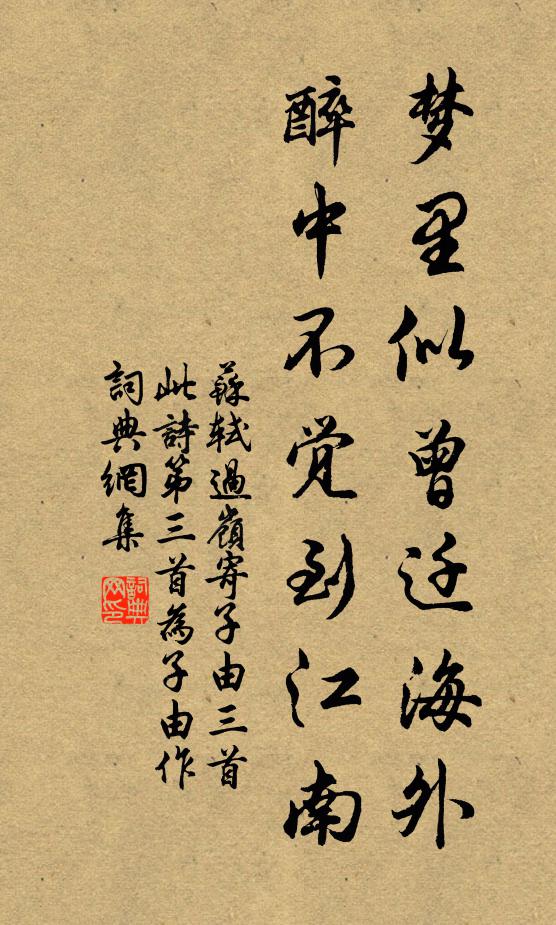 梦里似曾迁海外
醉中不觉到江南
蘇軾過嶺寄子由三首
此詩第三首為子由作
詞典網集
詞典网印